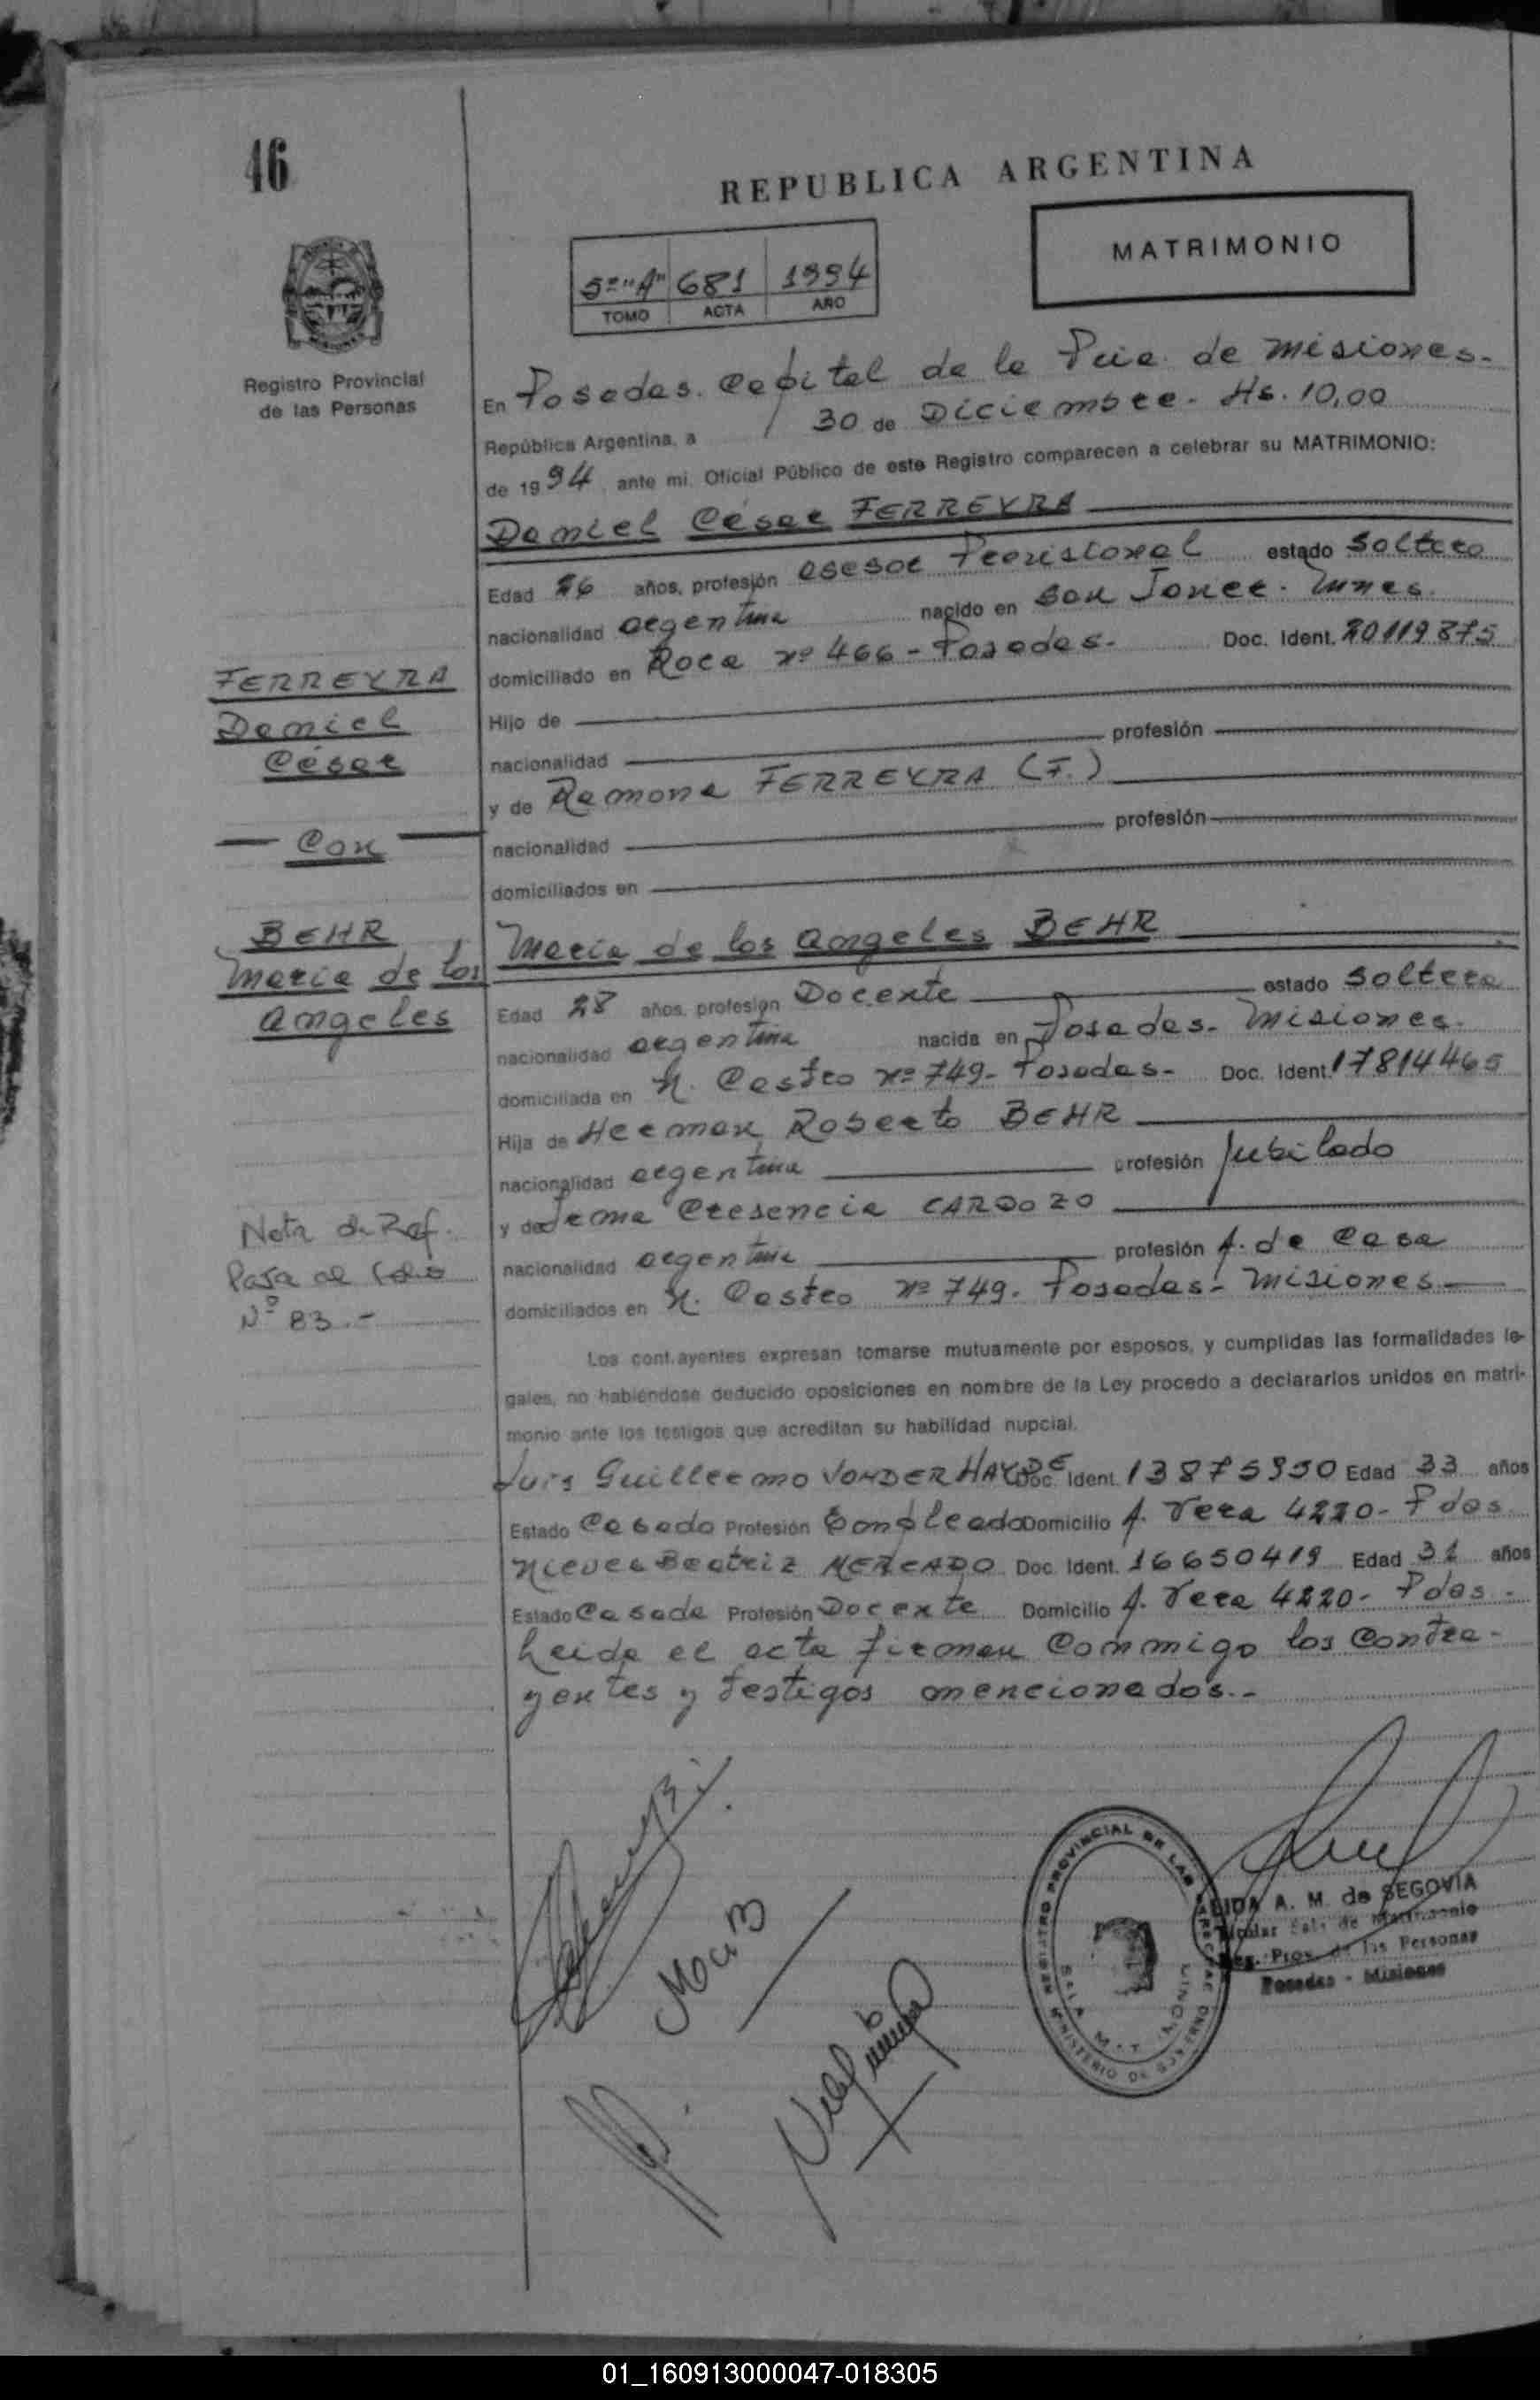 46
REPUBLICA ARGENTINA
MATRIMONIO
5º "A" 681 1994
TOMO ACTA AÑO
Registro Provincial
de las Personas
En Posadas. Capital de la Pcia. de Misiones.-
República Argentina, a 30 de Diciembre. Hs. 10,00
de 1994 ante mi, Oficial Público de este Registro comparecen a celebrar su MATRIMONIO:
Daniel César FERREYRA
Edad 26 años, profesión asesor Previsional estado soltero
nacionalidad argentina nacido en San Javier. Mnes.
domiciliado en Roca nº 466 - Posadas.- Doc. Ident. 20119875
Hijo de
nacionalidad profesión
y de Ramona FERREYRA (F.)
nacionalidad profesión
domiciliados en
FERREYRA
Daniel
César
Con
BEHR
María de los
Angeles
María de los Angeles BEHR
Edad 28 años, profesion Docente estado soltera
nacionalidad argentina nacida en Posadas. Misiones.
domiciliada en N. Castro nº 749 - Posadas.- Doc. Ident. 17814465
Hija de Herman Roberto BEHR
nacionalidad argentina profesión Jubilado
y de Irma Cresencia CARDOZO
nacionalidad argentina profesión A. de Casa
domiciliados en N. Castro nº 749. Posadas - Misiones
Nota de Ref.
Pasa al Folio
Nº 83.-
Los contrayentes expresan tomarse mutuamente por esposos, y cumplidas las formalidades le-
gales, no habiéndose deducido oposiciones en nombre de la Ley procedo a declararlos unidos en matri-
monio ante los testigos que acreditan su habilidad nupcial.
Luis Guillermo VONDERHAYDE Doc. Ident. 13875950 Edad 33 años
Estado Casado Profesión Empleado Domicilio A. Vera 4220 - Pdas.
Nieves Beatriz MERCADO Doc. Ident. 16650419 Edad 31 años
Estado Casada Profesión Docente Domicilio A. Vera 4220 - Pdas.-
Leida el acta firman conmigo los contra-
yentes y testigos mencionados.-
REGISTRO PROVINCIAL DE LAS PERSONAS
MINISTERIO DE GOBIERNO
A. M. de SEGOVIA
Titular Sala de Matrimonio
Reg. Prov. de las Personas
Posadas - Misiones
01_160913000047-018305